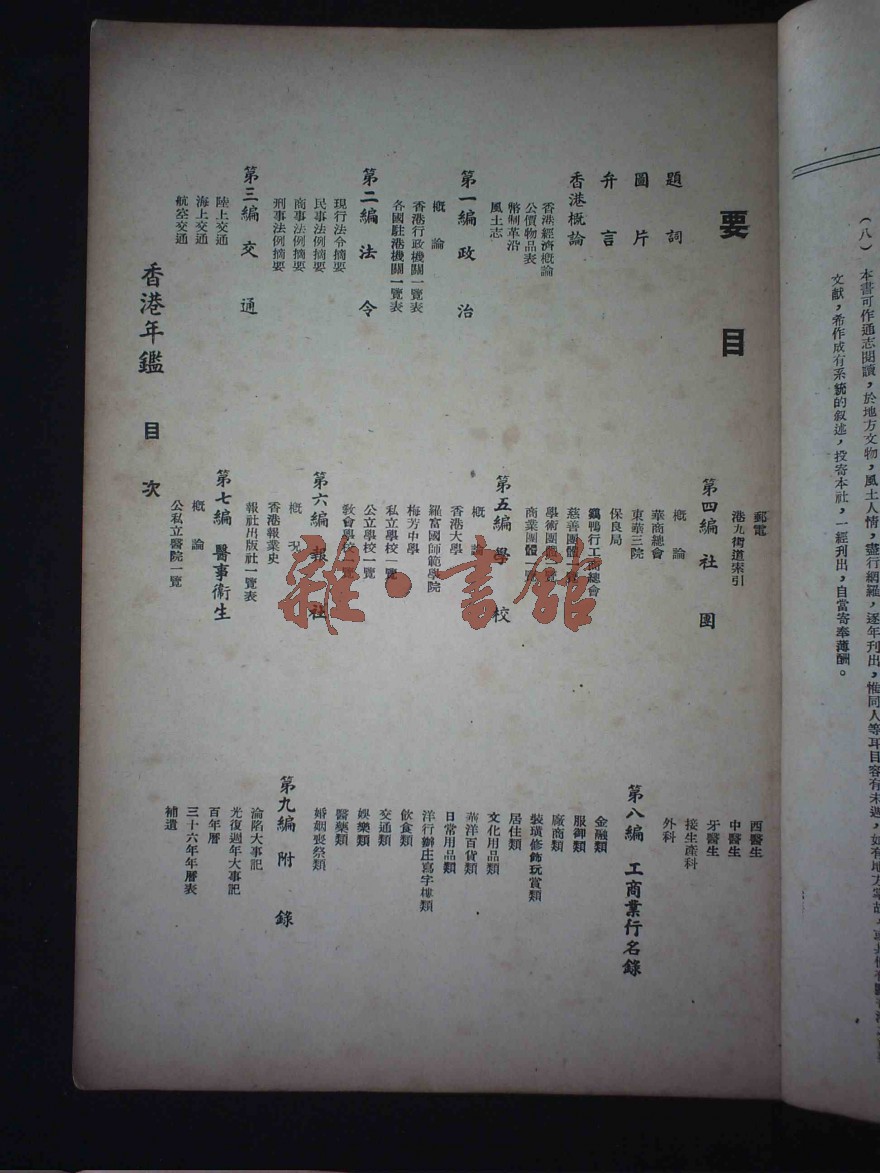 （八）本書可作通志閱讀，於地方文物，風土人情，盡行網羅，逐年刊出，惟同人等耳目容有未週，如有地方掌故，
文献，希作成有系統的叙述，投寄本社，一經刋出，自當寄奉薄酬。
要目
題詞
圖片
弁言
香港概論
香港經濟概論
公價物品表
幣制革沿
風土志
第一編 政治
概論
香港行政機關一覽表
各國駐港機關一覽表
第二編 法令
現行法令摘要
民事法例摘要
商事法例摘要
刑事法例摘要
第三編 交通
陸上交通
海上交通
航空交通
郵電
港九街道索引
第四編 社團
概論
華商總會
東華三院
保良局
鷄鴨行工商總會
慈善團體一覽
學術團體一覽
商業團體一覽
第五編 學校
概論
香港大學
羅富國師範學院
梅芳中學
私立學校一覽
公立學校一覽
敎會學校一覽
第六編 報社
概況
香港報業史
報社出版社一覽表
第七編 醫事衞生
概論
公私立醫院一覽
西醫生
中醫生
牙醫生
接生產科
外科
第八編 工商業行名錄
金融類
服御類
廠商類
裝璜修飾玩賞類
居住類
文化用品類
華洋百貨類
日常用品類
洋行辦庄寫字樓類
飲食類
交通類
娛樂類
醫藥類
婚姻喪祭類
第九編 附錄
淪陷大事記
光復週年大事記
百年曆
三十六年年曆表
補遺
香港年鑑 目次
雜·書館